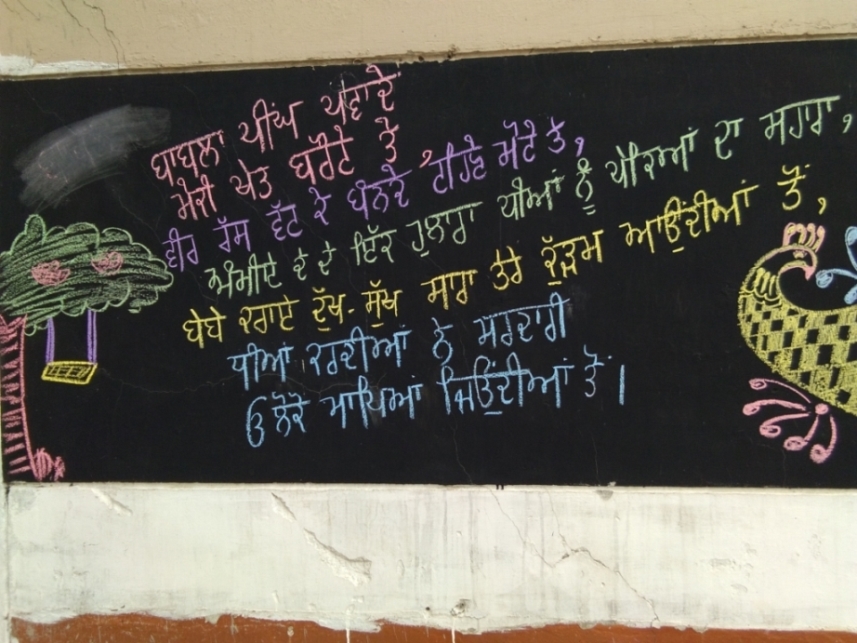 ਬਾਬਲਾ ਪੀਂਘ ਪਵਾਦੇ
ਮੇਰੀ ਖੇਤ ਬਰੋਟੇ ਤੇ
ਵੀਰ ਰੱਸ ਵੱਟ ਕੇ ਬੰਨਦੇ, ਟਾਹਣੇ ਮੋਟੇ ਤੇ,
ਅੰਮੀਏ ਦੇ ਦੇ ਇੱਕ ਹੁਲਾਰਾ ਧੀਆਂ ਨੂੰ ਪੇਕਿਆਂ ਦਾ ਸਹਾਰਾ,
ਬੇਬੇ ਕਰਾਏ ਦੁੱਖ-ਸੁੱਖ ਸਾਰਾ ਤੇਰੇ ਕੁੜਮ ਆਉਂਦੀਆਂ ਤੋਂ,
ਧੀਆਂ ਕਰਦੀਆਂ ਨੇ ਸਰਦਾਰੀ
ਓ ਲੋਕੋ ਮਾਪਿਆਂ ਜਿਉਂਦੀਆਂ ਤੋਂ।